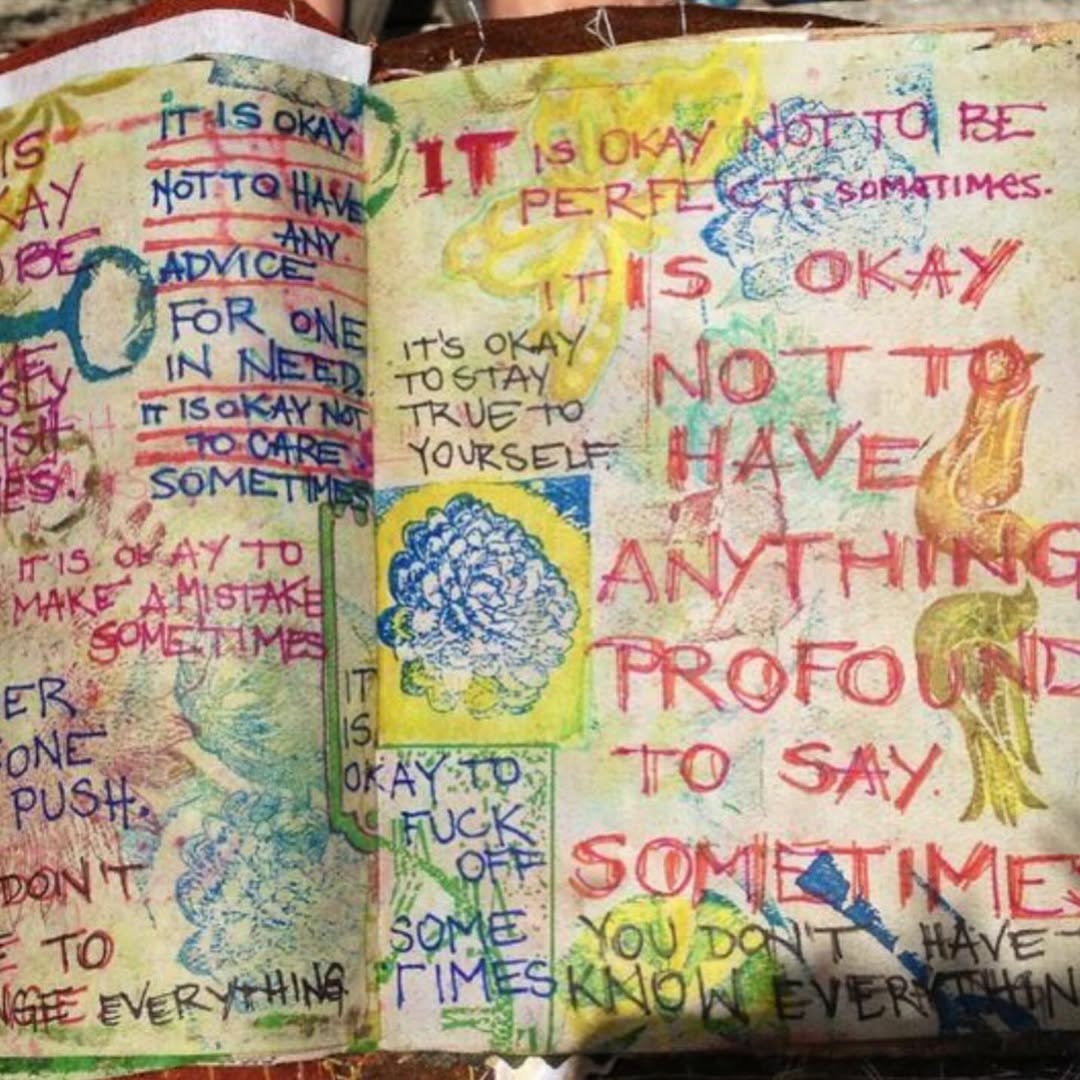 IS
KAY
BE
ME
SLY
ISH
ES.
IT IS OKAY
NOT TO HAVE
ANY
ADVICE
FOR ONE
IN NEED.
IT IS OKAY NOT
TO CARE.
SOMETIMES
IT IS OKAY TO
MAKE A MISTAKE
SOMETIMES
ER
ONE
PUSH.
DON'T
E TO
NGE EVERYTHING.
IT IS OKAY NOT TO BE
PERFECT. SOMATIMES.
IT'S OKAY
TO STAY
TRUE TO
YOURSELF.
IT
IS
OKAY TO
FUCK
OFF
SOME
TIMES
IT IS OKAY
NOT TO
HAVE
ANYTHING
PROFOUND
TO SAY.
SOMETIMES
YOU DON'T HAVE T
KNOW EVERYTHIN